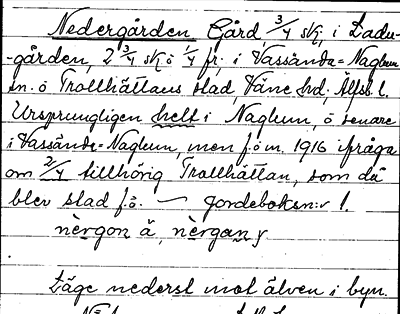 Nedergården Gård 3/4 sk, i Ladu-
-gården, 2 3/4 sk o 1/4 fr. i Vassända=Naglum
sn. o Trollhättans stad, Väne hd, Älfsb l.
Ursprungligen helt i Naglum, o senare
i Vassända=Naglum, men fo m. 1916 ifråga
om 2/4 tillhörig Trollhättan, som då
blev stad f.ö. — Jordeboksn:r 1.
nèrgon ä, nèrgan y
Läge nederst mot älven i byn.